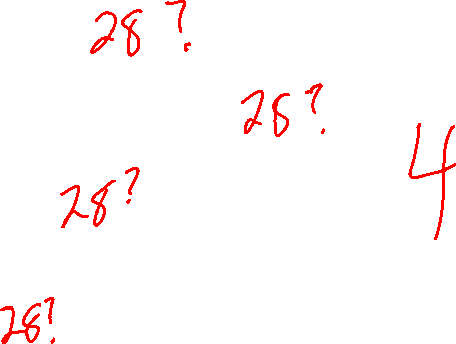 28?
28?
4
28?
28?